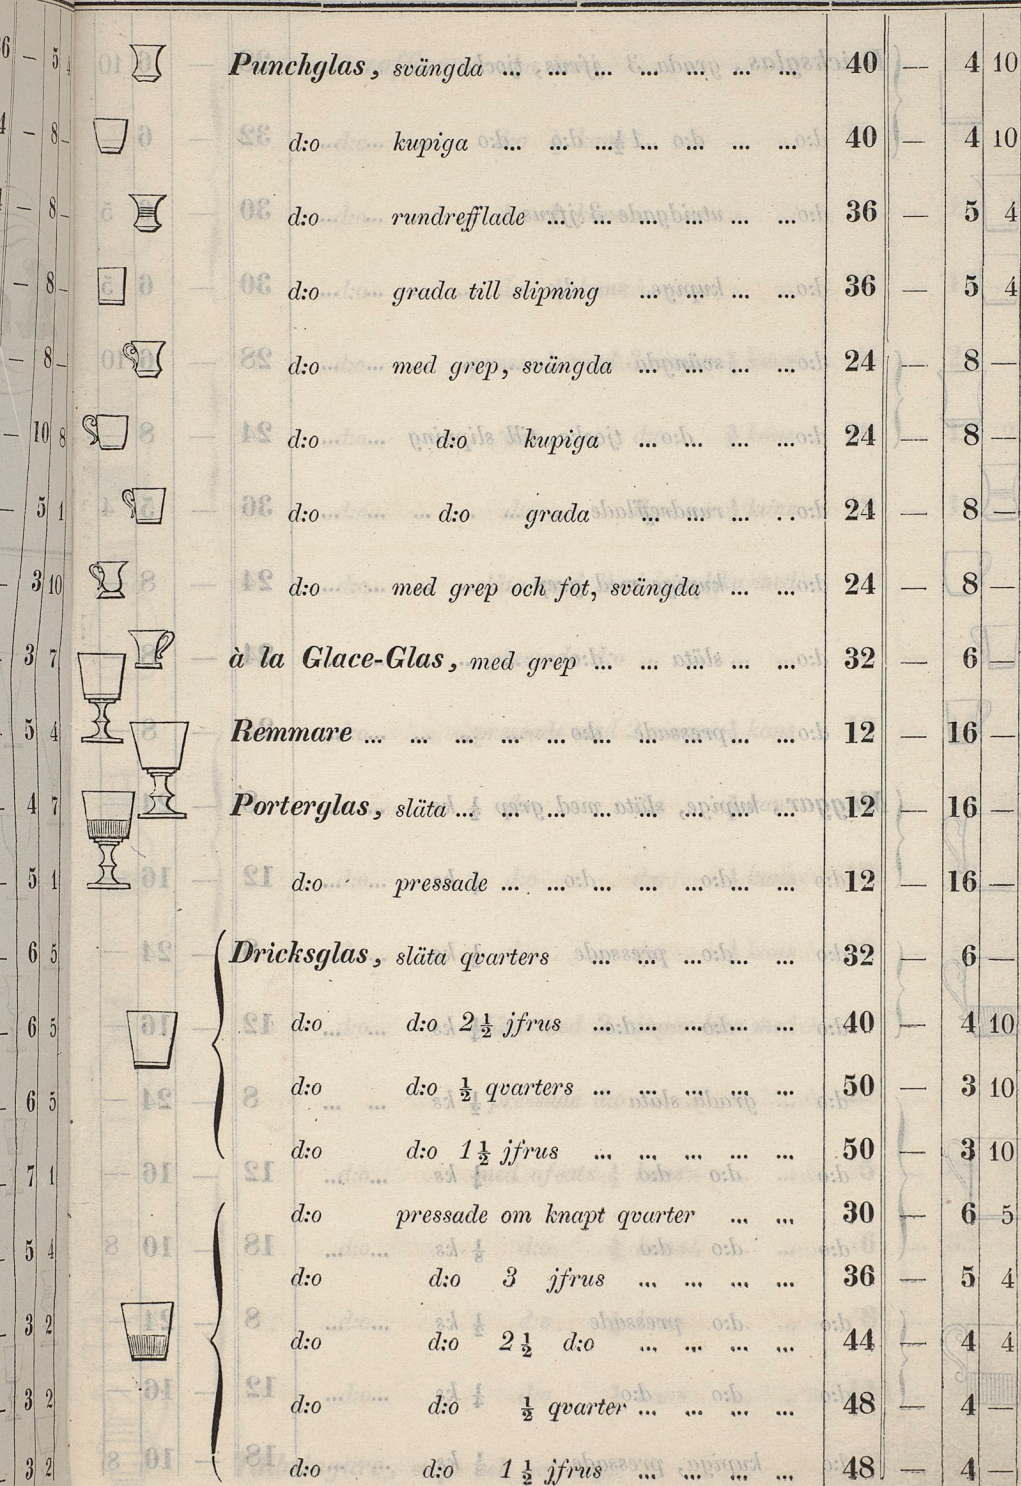 Punchglas, svängda ... ... ... ... ... ... ... 40 — 4 10
d:o kupiga ... ... ... ... ... ... ... 40 — 4 10
d:o rundrefflade ... ... ... ... ... ... 36 — 5 4
d:o grada till slipning ... ... ... ... 36 — 5 4
d:o med grep, svängda ... ... ... ... 24 — 8 —
d:o d:o kupiga ... ... ... ... 24 — 8 —
d:o d:o grada ... ... ... ... 24 — 8 —
d:o med grep och fot, svängda ... ... 24 — 8 —
à la Glace-Glas, med grep ... ... ... ... ... 32 — 6 —
Remmare ... ... ... ... ... ... ... ... ... ... 12 — 16 —
Porterglas, släta ... ... ... ... ... ... ... ... 12 — 16 —
d:o pressade ... ... ... ... ... ... ... 12 — 16 —
Dricksglas, släta qvarters ... ... ... ... ... 32 — 6 —
d:o d:o 2½ jfrus ... ... ... ... ... 40 — 4 10
d:o d:o ½ qvarters ... ... ... ... ... 50 — 3 10
d:o d:o 1½ jfrus ... ... ... ... ... 50 — 3 10
d:o pressade om knapt qvarter ... ... 30 — 6 5
d:o d:o 3 jfrus ... ... ... ... 36 — 5 4
d:o d:o 2½ d:o ... ... ... ... 44 — 4 4
d:o d:o ½ qvarter ... ... ... ... 48 — 4 —
d:o d:o 1½ jfrus ... ... ... ... 48 — 4 —